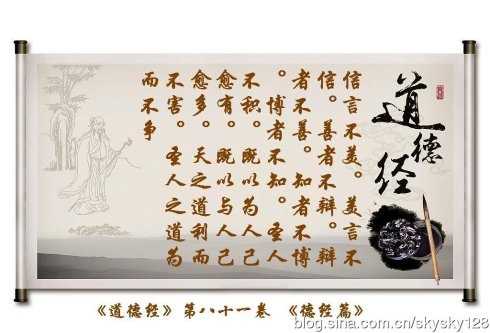 道德经
信言不美。美言不
信。善者不辩。辩
者不善。知者不博
。博者不知。圣人
不积。既以为人己
愈有。既以与人己
愈多。天之道利而
不害。圣人之道为
而不争
《道德经》 第八十一卷 《德经篇》
blog.sina.com.cn/skysky128